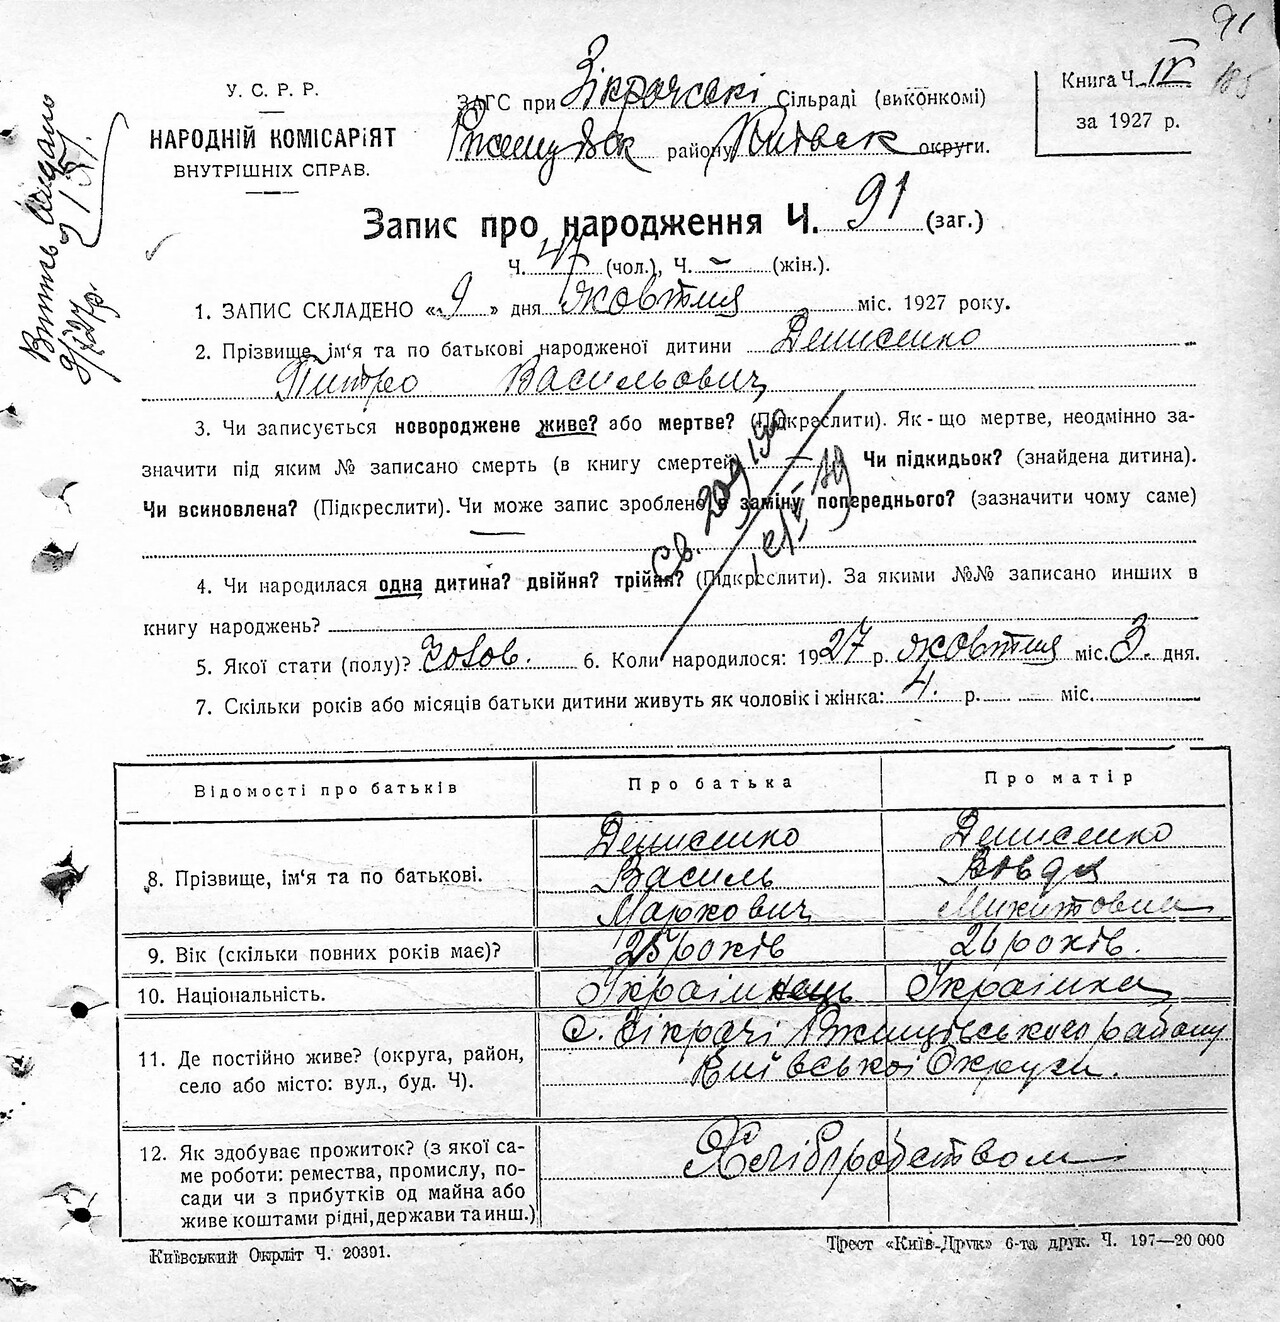 91
185
У. С. Р. Р.
НАРОДНІЙ КОМІСАРІЯТ
ВНУТРІШНІХ СПРАВ.
ЗАГС при Зікрачські Сільраді (виконкомі)
району Київськ округи.
Книга Ч. IV
за 1927 р.
Запис про народження Ч. 91 (заг.)
Ч. 47 (чол.), Ч. – (жін.).
1. ЗАПИС СКЛАДЕНО «9» дня жовтня міс. 1927 року.
2. Прізвище, ім'я та по батькові народженої дитини Денисенко
Питро Васильович
3. Чи записується новороджене живе? або мертве? (Підкреслити). Як-що мертве, неодмінно за-
значити під яким № записано смерть (в книгу смертей) — Чи підкидьок? (знайдена дитина).
Чи всиновлена? (Підкреслити). Чи може запис зроблено в заміну попереднього? (зазначити чому саме)
4. Чи народилася одна дитина? двійня? трійня? (Підкреслити). За якими №№ записано инших в
книгу народжень?
5. Якої стати (полу)? чолов. 6. Коли народилося: 1927 р. жовтня міс. 3. дня.
7. Скільки років або місяців батьки дитини живуть як чоловік і жінка: 4. р. міс.
Відомості про батьків Про батька Про матір
8. Прізвище, ім'я та по батькові.
Денисенко Денисенко
Василь Вовдя
Маркович Микитовна
9. Вік (скільки повних років має)? 25 років 26 років.
10. Національність. Українець Українка
11. Де постійно живе? (округа, район,
село або місто: вул., буд. Ч).
с. Зікрачі Ржищівського району
Київської Округи.
12. Як здобуває прожиток? (з якої са-
ме роботи: ремества, промислу, по-
сади чи з прибутків од майна або
живе коштами рідні, держави та инш.)
Хліборобством
Київський Окрліт Ч. 20391.
Трест «Київ-Друк» 6-та друк. Ч. 197—20 000